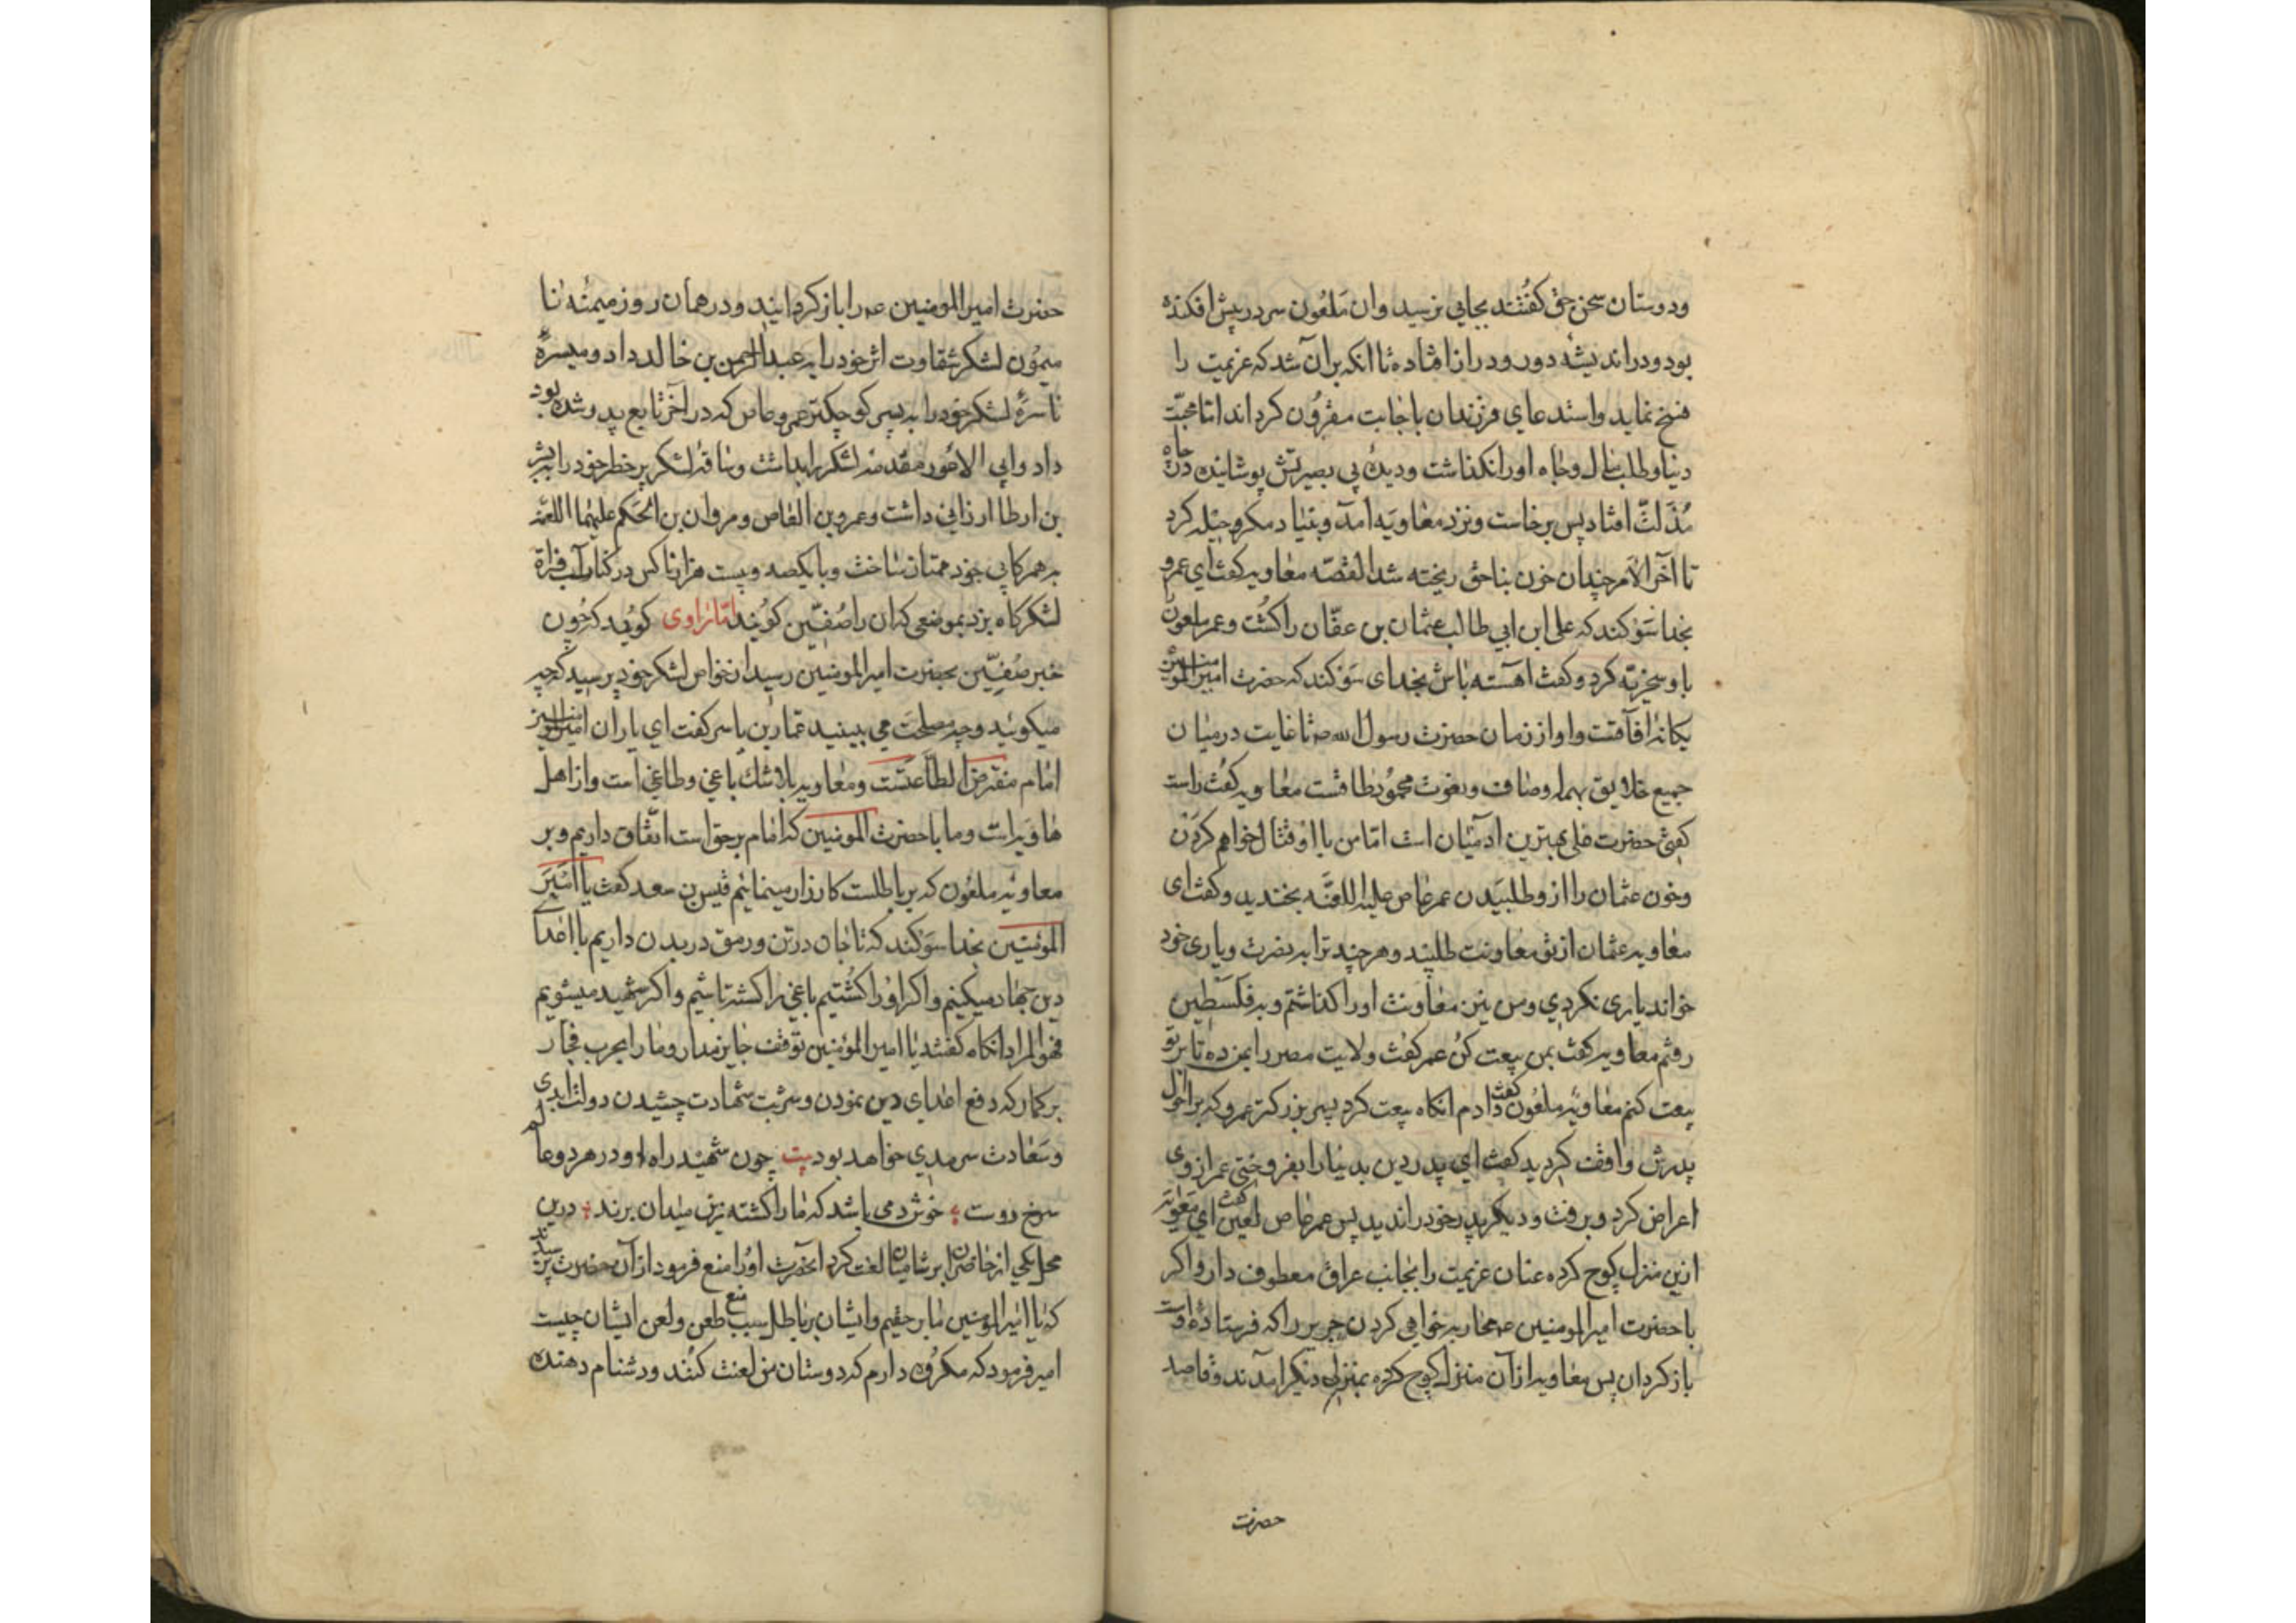 ودوستان سخن حق گفتند بجایی نرسید وان ملعون سر در پیش افکنده
بود ودر اندیشه دور ودراز افتاده تا انکه بران شد که عزیمت را
فسخ نماید واستدعای فرزندان باجابت مقرون کرداند اما محبت
دنیا وطلب مال وجاه اورا نکذاشت ودیده بی بصیرتش پوشانیده در چاه
مذلت افتاد پس برخاست ونزد معاویه آمد وبنیاد مکر وحیله کرد
تا آخر الامر چندان خون بناحق ریخته شد القصه معاویه کفت ای عمرو
بخدا سوکند که علی ابن ابی طالب عثمان بن عفان را کشت وعمر ملعون
با وسخریه کرد وکفت آهسته باش بخدای سوکند که حضرت امیر المومنین
یکانه افآقست واو از زمان حضرت رسول الله ص تا غایت درمیان
جمیع خلایق بهمه اوصاف ونعوت محموده طاقست معاویه کفت راست
کفتی حضرت علی بهترین ادمیان است اما من با او قتال خواهم کردن
وخون عثمان را از وطلبیدن عمر عاص علیه اللعنه بخندید وکفت ای
معاویه عثمان از تو معاونت طلبید وهر چند ترا به نصرت ویاری خود
خواند یاری نکردی ومن نیز معاونت اورا کذاشتم وبه فلسطین
رفتم معاویه کفت بمن بیعت کن عمر کفت ولایت مصر را بمن ده تا بر تو
بیعت کنم معاویه ملعون کفت دادم انکاه بیعت کرد پسر بزرکتر عمرو که بر احوال
پدرش واقف کردید کفت ای پدر دین بدنیا را بفروختی عمر از وی
اعراض کرد وبرفت ودیکر پدر خود را ندید پس عمر عاص لعین کفت ای معویه
ازین منزل کوچ کرده عنان عزیمت را بجانب عراق معطوف دار واکر
با حضرت امیر المومنین ع محاربه خواهی کردن جریر را که فرستاده اوست
باز کردان پس معاویه از آن منزل کوچ کرده بمنزلی دیکر امدند وقاصد
حضرت
حضرت امیر المومنین ع را باز کردانید ودر همان روز میمنه نا
میمون لشکر شقاوت اثر خود را به عبد الرحمن بن خالد داد ومیسره
ناسره لشکر خود را به پسر کوچکتر عمرو عاص که در آخر تابع پدر شده بود
داد وابی الاعور مقدمه لشکر را بداشت وساقه لشکر پر خطر خود را به بشر
بن ارطا ارزانی داشت وعمرو بن العاص ومروان بن الحکم علیهما اللعنه
به همرکابی خود ممتاز ساخت وبا یکصد وبیست هزار ناکس در کنار آب فراة
لشکرکاه بزد بموضعی که ان را صفین کویند اما راوی کوید که چون
خبر صفین بحضرت امیر المومنین رسید از خواص لشکر خود پرسید که چه
میکوئید وچه مصلحت می بینید عمار بن یاسر کفت ای یاران امیر المومنین
امام مفترض الطاعتست ومعاویه بلاشك باغی وطاغی است واز اهل
هاویه است وما با حضرت المومنین که امام برحق است اتفاق داریم وبر
معاویه ملعون که بر باطلست کارزار مینمائیم قیس بن سعد کفت یا امیر
المومنین بخدا سوکند که تا جان در تن ورمق در بدن داریم با اعدا
دین جهاد میکنیم واکر اورا کشتیم باغی را کشته باشیم واکر شهید میشویم
فهو المراد انکاه کفتند یا امیر المؤمنین توقف جایز مدار ومارا بحرب فجار
بر کمار که دفع اعدای دین نمودن وشربت شهادت چشیدن دولت ابدی
وسعادت سرمدی خواهد بود بیت چون شهید راه او در هر دو عالم
سرخ روست خوش دمی باشد که مارا کشته زین میدان برند درین
محل یکی از حاضران بر شامیان لعنت کرد آنحضرت اورا منع فرمود از آن حضرت پرسیدند
که یا امیر المؤمنین ما بر حقیم وایشان بر باطل سبب منع طعن ولعن ایشان چیست
امیر فرمود که مکروه دارم که دوستان من لعنت کنند ودشنام دهنده